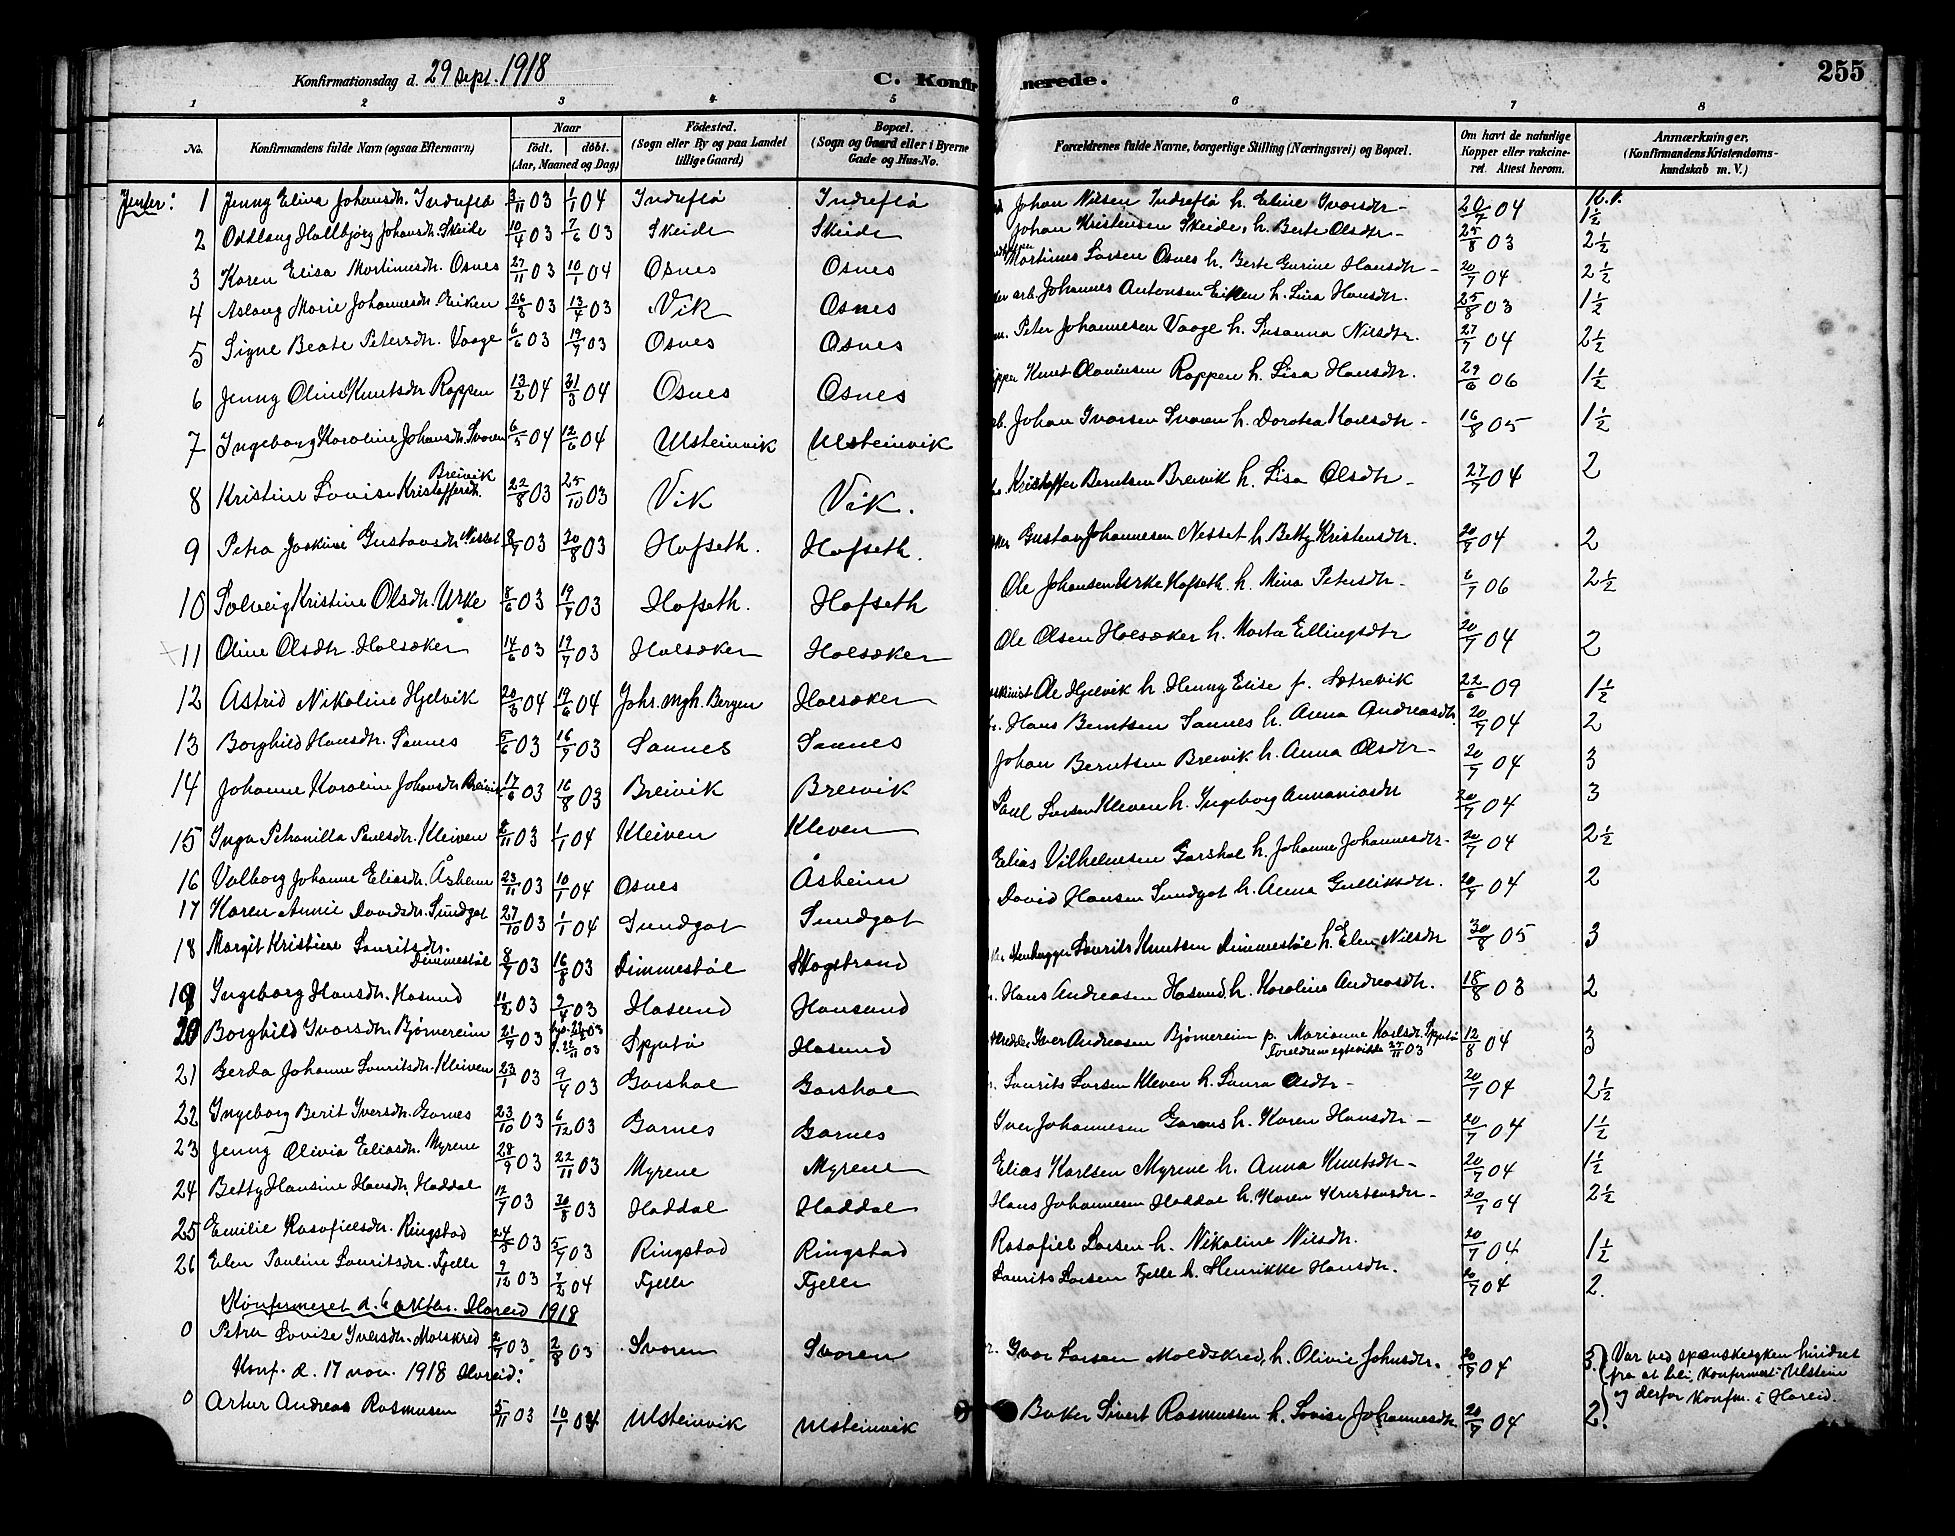 Konfirmationsdag d. 29 sept. 1918
C. Konfirmerede.
255
1 2 3 4 5 6 7 8
No.
Konfirmandens fulde Navn (ogsaa Efternavn)
Naar
født. døbt.
(Aar, Maaned og Dag)
Fødested.
(Sogn eller By og paa Landet
tillige Gaard)
Bopæl.
(Sogn og Gaard eller i Byerne
Gade og Hus-No.
Forældrenes fulde Navne, borgerlige Stilling (Næringsvei) og Bopæl.
Om havt de naturlige
Kopper eller vakcine-
ret. Attest herom.
Anmærkninger,
(Konfirmandens Kristendoms-
kundskab m. V.)
Jenter: 1 Jenny Elina Johansdtr. Indreflø 3/11 03 1/1 04 Indreflø Indreflø Johan Nilsen Indreflø h. Eline Ivarsdtr 20/7 04 1½
2 Oddlaug Hallbjørg Johansdtr. Skeide 10/4 03 7/6 03 Skeide Skeide Johan Kristensen Skeide, h. Berte Olsdtr 25/8 03 2½
3 Karen Elisa Mortinusdtr. Osnes 27/11 03 10/1 04 Osnes Osnes Mortinus Larsen Osnes h. Berte Gurine Hansdtr 20/7 04 2½
4 Aslaug Marie Johannesdtr. Eiken 26/3 03 13/4 03 Vik Osnes arb. Johannes Antonsen Eiken h. Lina Hansdtr. 25/8 03 1½
5 Signe Beate Petersdtr. Vaage 6/6 03 19/7 03 Osnes Osnes Peter Johannesen Vaage h. Susanna Nilsdtr. 27/7 04 2½
6 Jenny Oline Knutsdtr Roppen 13/2 04 31/3 04 Osnes Osnes Knut Olavinsen Roppen h. Lisa Hansdtr. 29/6 06 1½
7 Ingeborg Karoline Johansdtr. Svoren 6/5 04 12/6 04 Ulsteinvik Ulsteinvik Johan Ivarsen Svoren h. Dorotea Karlsdtr 16/8 05 1½
8 Kristine Lovise Kristoffersdtr. Breivik 22/8 03 25/10 03 Vik Vik. Kristoffer Berntsen Breivik h. Lisa Olsdtr 27/7 04 2
9 Petra Joskine Gustavsdtr. Nesset 8/7 03 30/8 03 Hofseth. Hofseth. Gustav Johannesen Nesset h. Betty Kristensdtr. 20/7 04 2
10 Solveig Kristine Olsdtr. Urke 8/6 03 19/7 03 Hofseth. Hofseth Ole Johansen Urke Hofseth h. Mina Petersdtr 6/7 06 2½
11 Oline Olsdtr. Holsæker 14/6 03 19/7 03 Holsæker Holsæker Ole Olsen Holsæker h. Marta Ellingsdtr 20/7 04 2
12 Astrid Nikoline Hjelvik 20/3 04 19/6 04 Johs. mgh. Bergen Holsæker Ole Hjelvik h. Henny Elise f. Sætrevik 22/6 09 1½
13 Borghild Hansdtr. Sannes 5/6 03 16/7 03 Sannes Sannes Hans Berntsen Sannes h. Anna Andreasdtr. 20/7 04 2
14 Johanne Karoline Johansdtr Breivik 17/6 03 16/8 03 Breivik Breivik Johan Berntsen Breivik h. Anna Olsdtr 20/7 04 3
15 Inga Petronilla Paulsdtr. Kleiven 8/11 03 1/1 04 Kleiven Kleven Paul Larsen Kleven h. Ingeborg Annaniasdtr 20/7 04 3
16 Valborg Johanne Eliasdtr. Åsheim 23/11 03 10/1 04 Osnes Åsheim Elias Vilhelmsen Garshol h. Johanne Johannesdtr 20/7 04 2½
17 Karen Annie Davidsdtr. Sundgot 27/10 03 1/1 04 Sundgot Sundgot David Hansen Sundgot h. Anna Gulliksdtr. 20/7 04 2
18 Margit Kristine Lauritsdtr. Dimmestøl 8/7 03 16/8 03 Dimmestøl Skogstrand Laurits Knutsen Dimmestøl h. Elen Nilsdtr 30/8 05 3
19 Ingeborg Hansdtr. Hasund 11/2 03 2/4 03 Hasund Hansund Hans Andreasen Hasund, h. Karoline Andreasdtr. 18/8 03 2
20 Borghild Ivarsdtr. Bjørnereim 21/7 03 Spjutø Hasund Iver Andreasen Bjørnereim p. Marianne Karlsdtr. Spjutø 12/8 04 3
21 Gerda Johanne Lauritsdtr. Kleiven 23/1 03 9/4 03 Garshol Garshol Laurits Larsen Kleven h. Laura Olsdtr 20/7 04 2½
22 Ingeborg Berit Iversdtr. Garnes 23/10 03 6/12 03 Garnes Garnes Iver Johannesen Garnes h. Karen Hansdtr 20/7 04 1½
23 Jenny Olivia Eliasdtr. Myrene 28/9 03 22/11 03 Myrene Myrene Elias Karlsen Myrene h. Anna Knutsdtr 20/7 04 1½
24 Betty Hansine Hansdtr. Haddal 12/7 03 30/8 03 Haddal Haddal Hans Johannesen Haddal h. Karen Kristensdtr 20/7 04 2½
25 Emilie Rasafielsdtr. Ringstad 24/5 03 5/7 03 Ringstad Ringstad Rasafiel Larsen h. Nikoline Nilsdtr. 20/7 04 1½
26 Elen Pauline Lauritsdtr. Fjelle 9/12 03 7/2 04 Fjelle Fjelle Laurits Larsen Fjelle h. Henrikke Hansdtr. 20/7 04 2.
Konfirmeret d. 6 oktbr. Hareid 1918
0 Petra Lovise Iversdtr. Molskred 2/7 03 2/8 03 Svoren Svoren Ivar Larsen Moldskred, h. Olivie Johnsdtr. 20/7 04 3. Var ved spanskesyken hindret
fra at bli konfirmert i Ulstein
og derfor Konfm. i Hareid.
Konf. d. 17 nov. 1918 Hareid:
0 Artur Andreas Rasmusen 5/11 03 10/1 04 Ulsteinvik Ulsteinvik Baker Sivert Rasmussen h. Lovise Johannesdtr. 20/7 04 2.